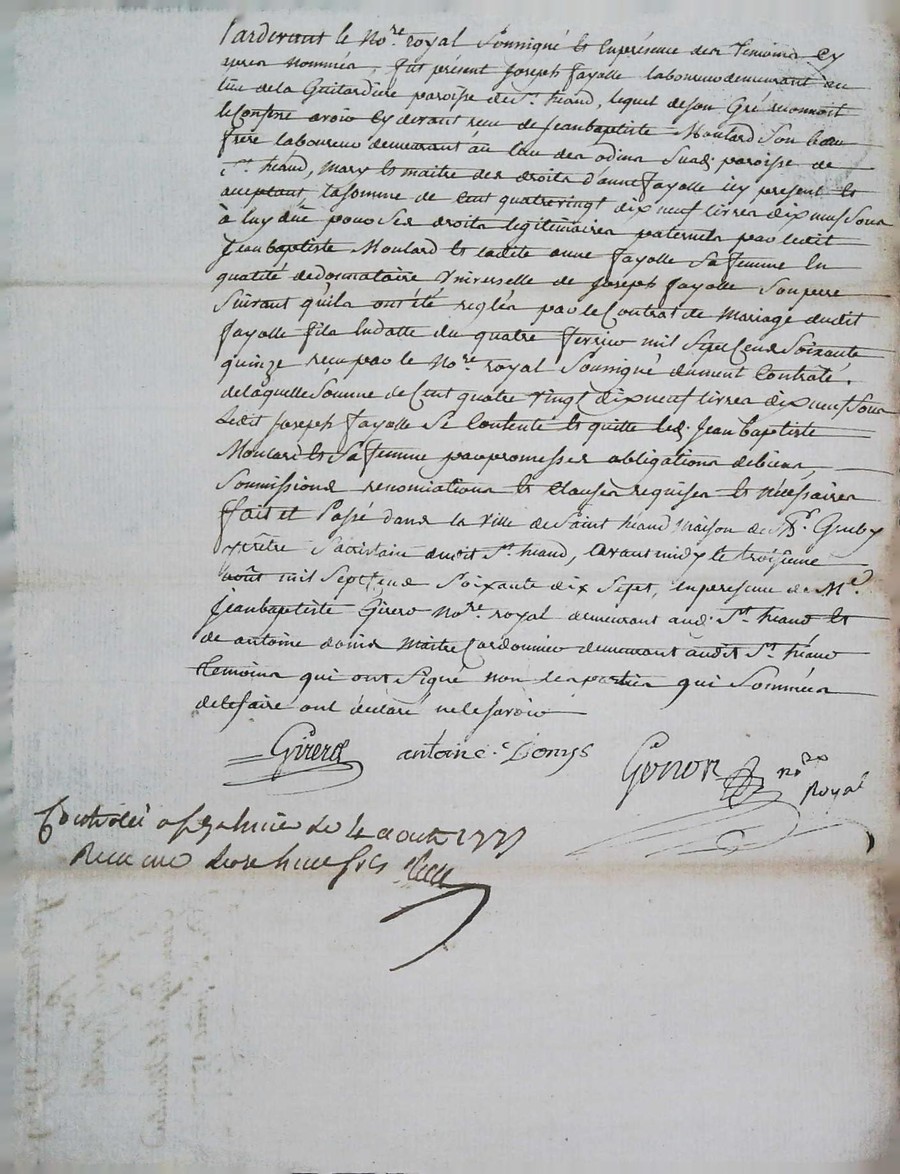 Pardevant le No.re royal Soussigné et Enpresence des Temoins Cy
apres nommés, fut présent Joseph fayolle laboureur demeurant au
lieu de la Guitardiere paroisse de St. héand, lequel de son Gré reconnoit
et Confesse avoir Cy devant reçu de Jeanbaptiste Moulard Son beau
frere laboureur demeurant au lieu des odins Susd. paroisse de
St. héand, mary et maitre des droits d'anne fayolle icy present et
acceptant, la somme de Cent quatrevingt dix neuf livres dix neuf Sous
à luy düe pour Ses droits legitimaires paternels par ledit
Jeanbaptiste Moulard et ladite anne fayolle Sa femme En
qualité de donnataire Universelle de Joseph fayolle Son pere
Suivant qu'ils ont été reglés par le Contrat de Mariage dudit
fayolle fils En datte du quatre fevrier mil Sept Cend Soixante
quinze reçu par le No.re royal Soussigné dument Controlé.
de laquelle Somme de Cent quatre vingt dix neuf livres dix neuf Sous
Ledit Joseph fayolle Se Contente et quitte led. Jeanbaptiste
Moulard et Sa femme par promesses obligations de biens,
Soumissions renonciations et Clauses requises et nécessaires
fait et Passé dans la Ville de Saint héand Maison de
prêtre Sacristain dudit St. héand, avant midy le troisieme
août mil Sept Cend Soixante dix Sept, en presence de Me.
Jeanbaptiste Girerd No.re royal demeurant aud. St. héand et
de antoine Maitre Cordonnier demeurant audit St. héand
temoins qui ont Signé non les parties qui Sommées
de le faire ont déclaré ne le Savoir
Girerd antoine Gonon no.re Royal
Controlé a le 4 aout 1777
Reçu